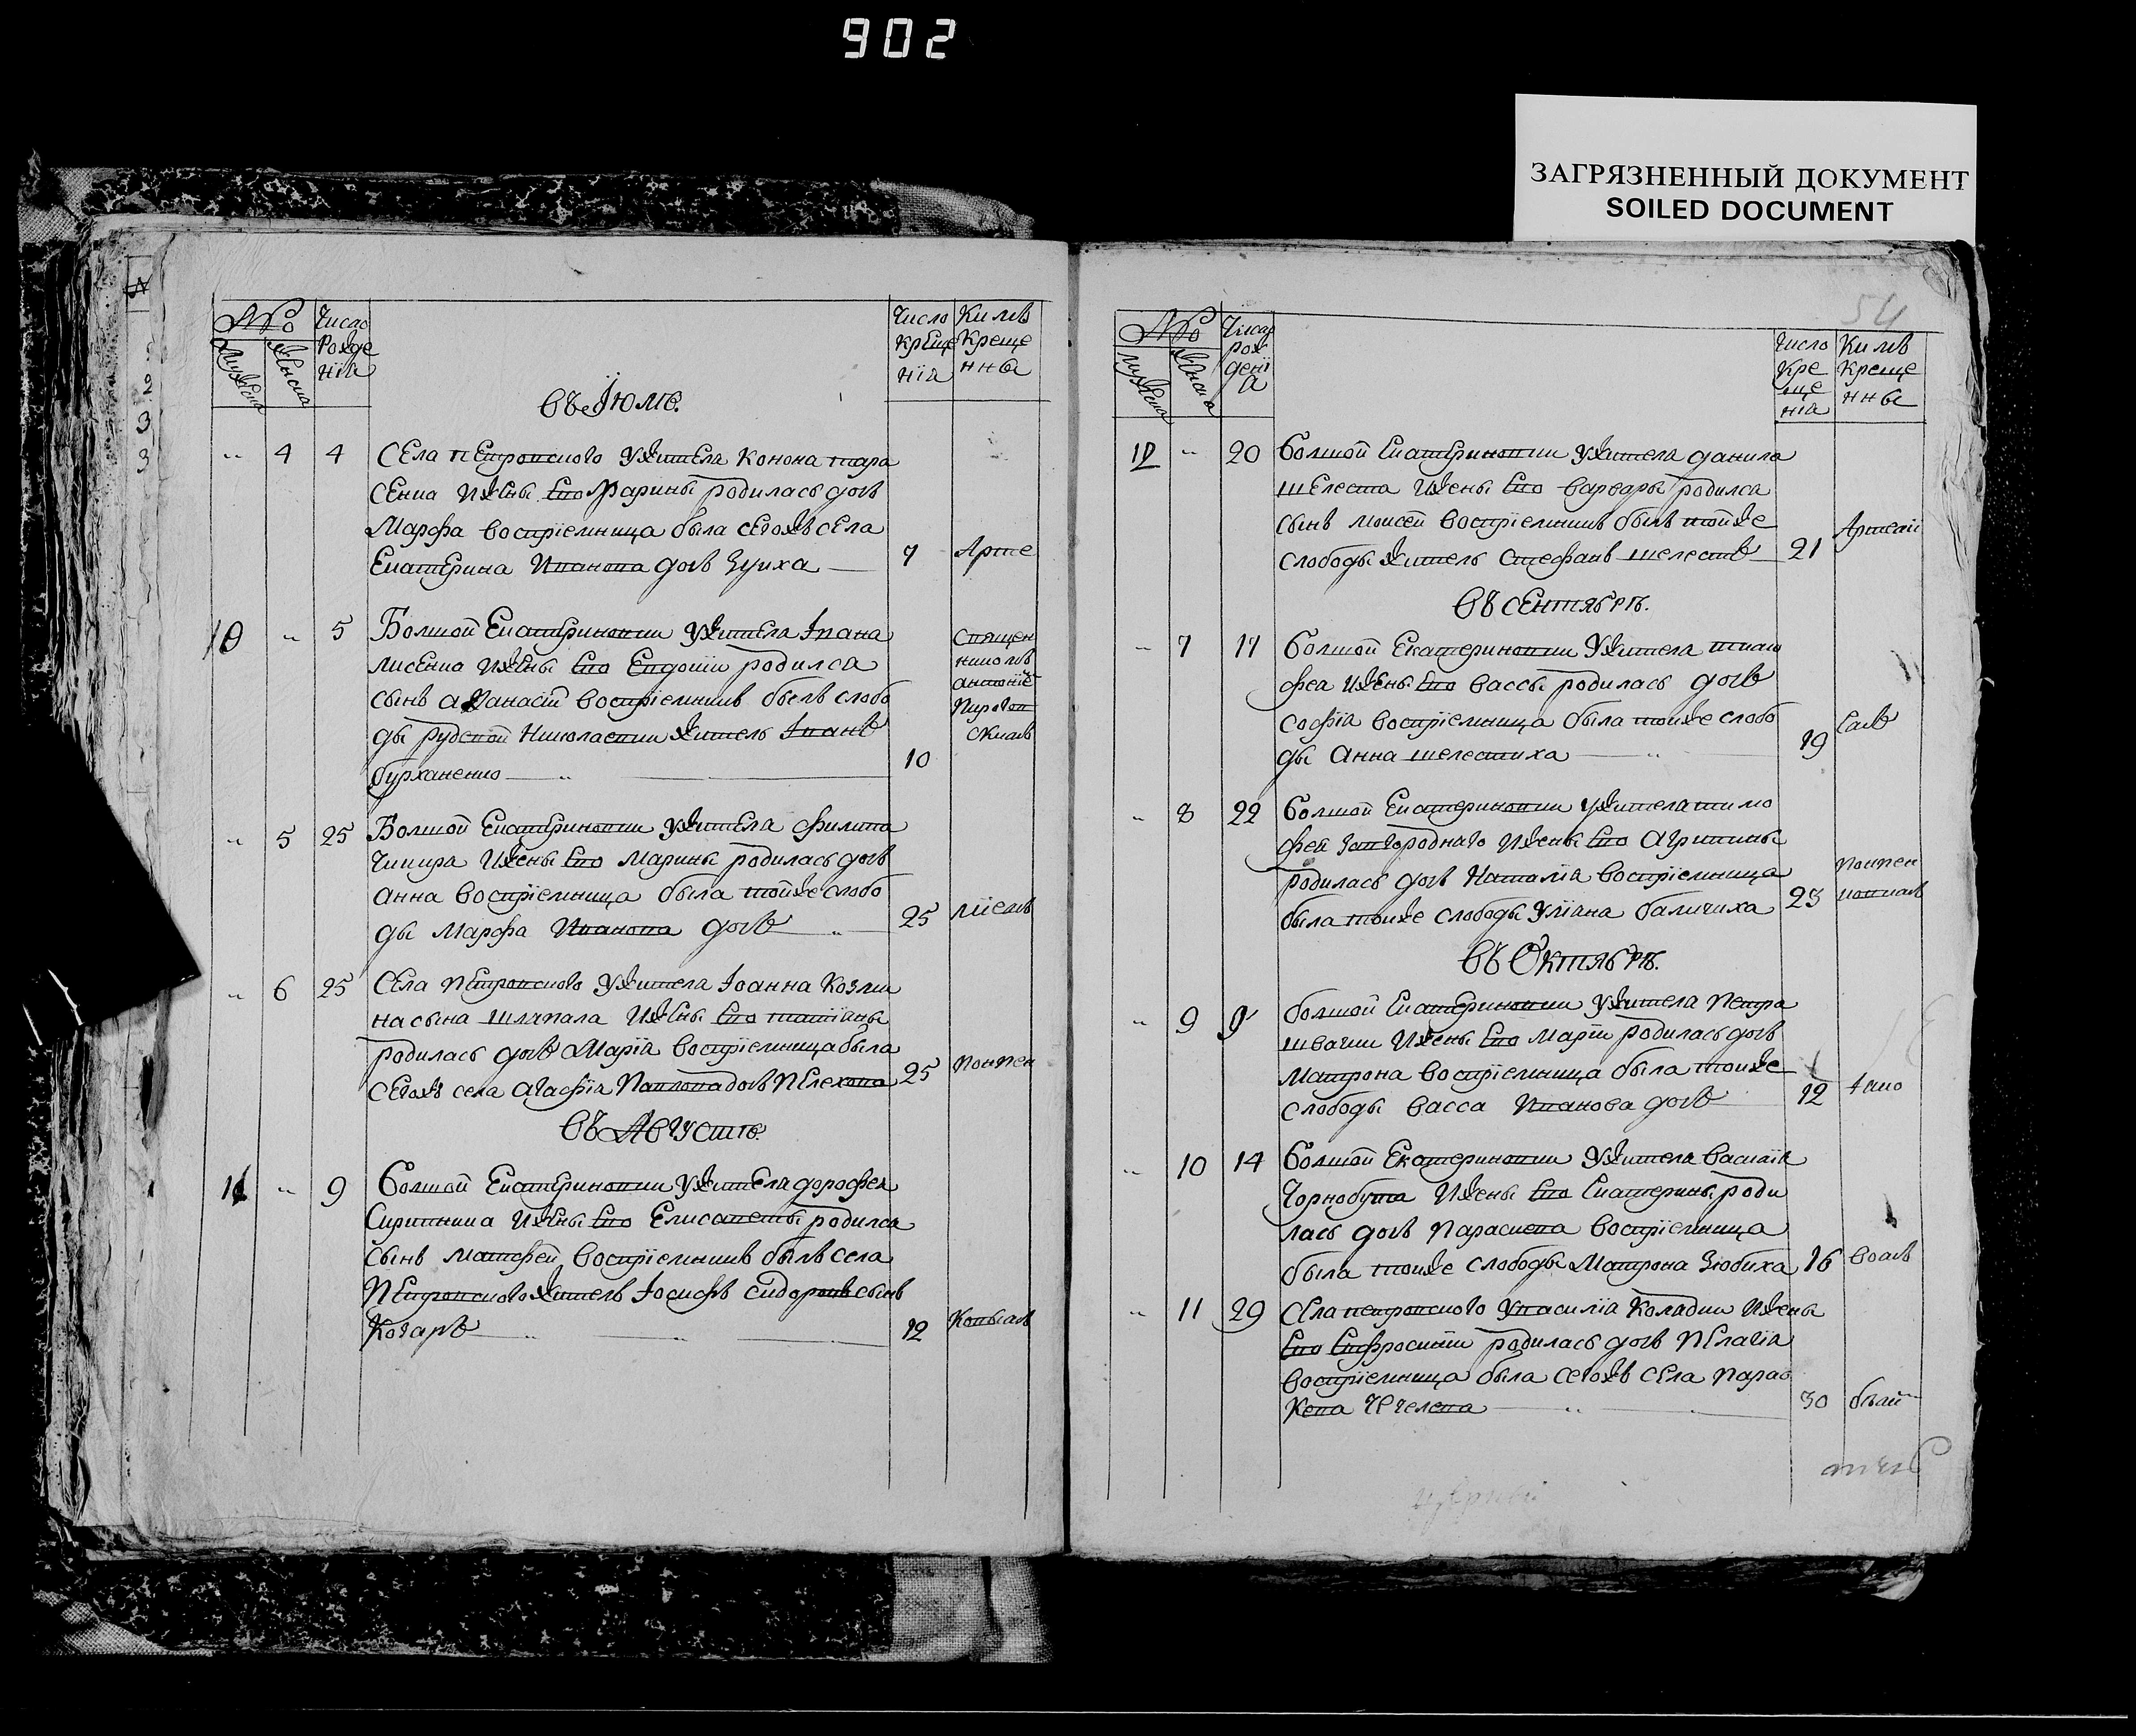 902
ЗАГРЯЗНЕННЫЙ ДОКУМЕНТ
SOILED DOCUMENT
№ Число Рожденїя
Мужеска Женска
Число крещенїя
Кимъ крещенны
въ Їюлѣ.
4 4 Села петровского ужителя Конона тара
сенка ижены Его Марины родилась дочь
Марфа воспрїемница была сегожъ села
Екатерина Иванова дочь Зуиха 7 Арте
10 5 Болшой Екатериновки ужителя Ивана
лисенка ижены Его Евдокїи родился
сынъ афанасїй воспрїемникъ былъ слобо
ды рудской Николаевки житель Иванъ
бурханенко 10
Священ
никомъ
антонїе
Пирогов
скимъ
5 25 Болшой Екатериновки ужителя филипа
Чикира ижены Его Марины родилась дочь
анна воспрїемница была тойже слобо
ды Марфа Иванова дочь 25
6 25 Села петровского ужителя Іоанна Козми
на сына шляпала ижены Его татїаны
родилась дочь Марїя воспрїемница была
сегожъ села агафїя Павлова дочь Пелехова 25
въ Августѣ.
11 9 Болшой Екатериновки ужителя дорофея
Скрипника ижены Его Елисаветы родился
сынъ матфей воспрїемникъ былъ села
Петровского житель Іосифъ сидоровъ сынъ
Кочаръ 12
54
№ Число рожденїя
Мужеска Женска
Число крещенїя
Кимъ крещенны
12 20 болшой Екатериновки ужителя данила
шелеста ижены Его варвары родился
сынъ моисей воспрїемникъ былъ тойже
слободы житель стефанъ шелестъ 21
въ сентябрѣ.
7 17 болшой Екатериновки ужителя тимо
фея ижены Его вассы родилась дочь
софїя воспрїемница была тойже слобо
ды анна шелестиха 19
8 22 болшой Екатериновки ужителя тимо
фея Загороднаго ижены Его Агрипины
родилась дочь Наталїя воспрїемница
была тойже слободы Улїана баличиха 23
въ Октябрѣ.
9 9 болшой Екатериновки ужителя Петра
швачки ижены Его Марїи родилась дочь
Матрона воспрїемница была тойже
слободы васса Иванова дочь 12
10 14 болшой Екатериновки ужителя василїя
Чорнобута ижены Его Екатерины роди
лась дочь Параскева воспрїемница
была тойже слободы Матрона Зюбиха 16
11 29 села петровского Увасилїя Колядки ижены
Его Ефросинїи родилась дочь Пелагїя
воспрїемница была сегожъ села парас
кева Чечелева 30